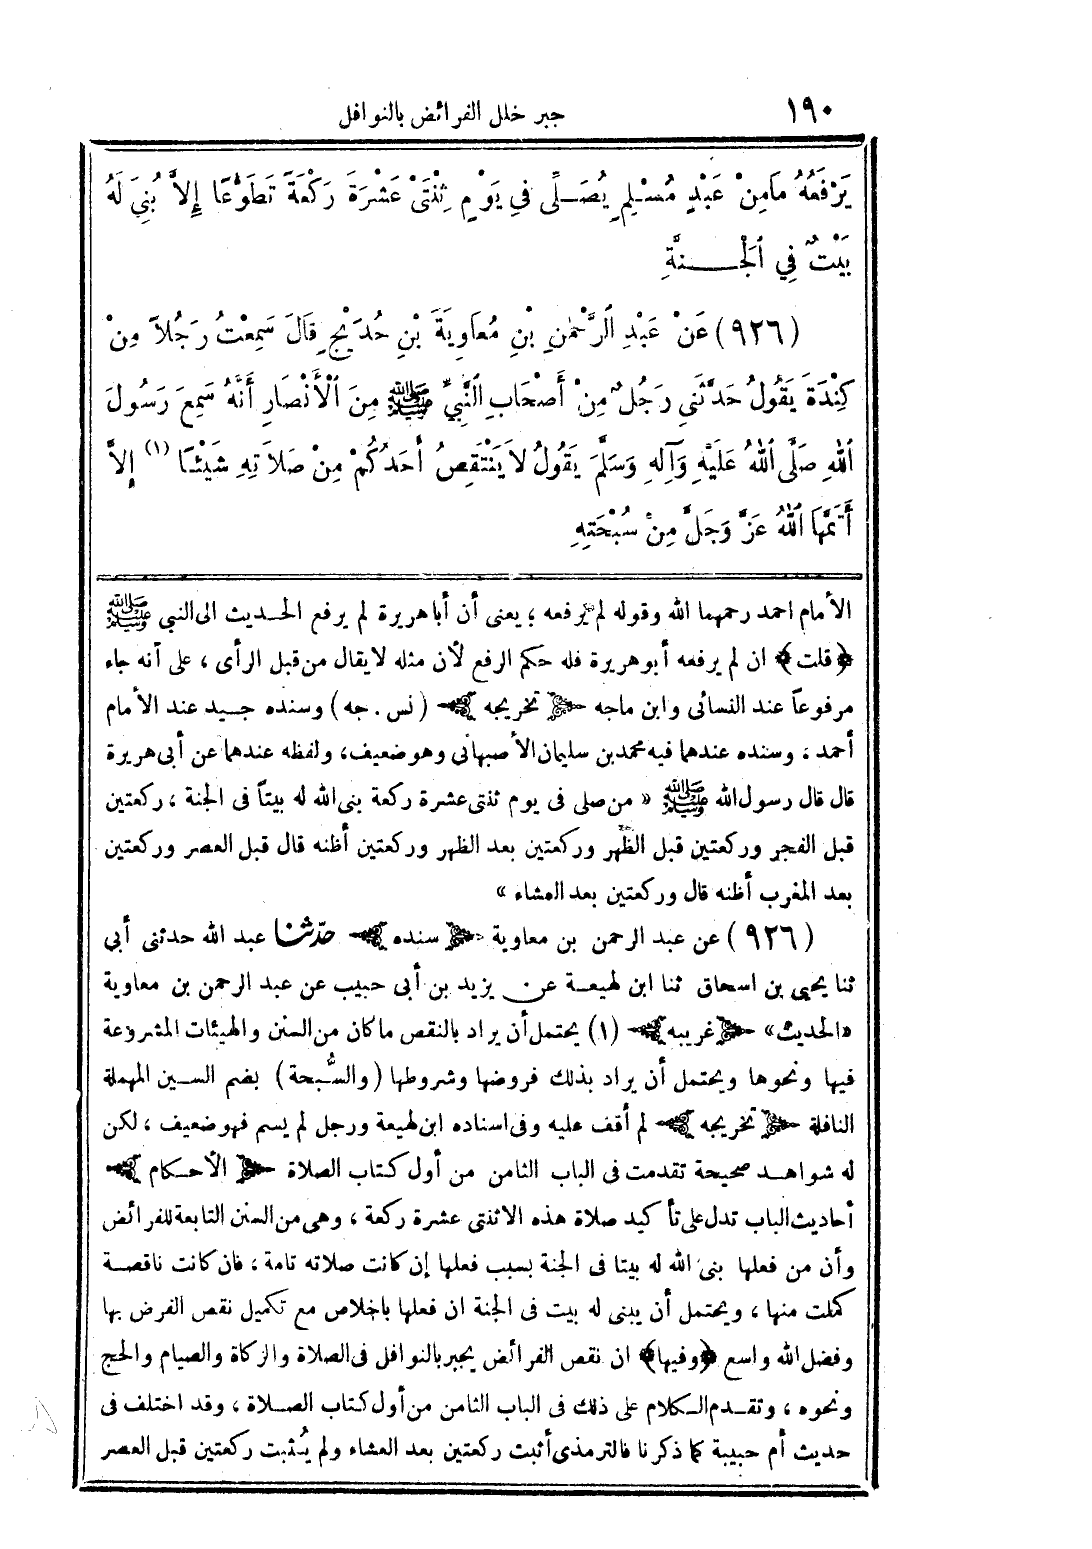 ١٩٠
جبر خلل الفرائض بالنوافل
يَرْفَعُهُ مَامِنْ عَبْدٍ مُسْلِمٍ يُصَلِّى فِي يَوْمٍ ثِنْتَىْ عَشْرَةَ رَكْعَةً تَطَوُّعًا إِلاَّ بُنِيَ لَهُ
بَيْتٌ فِي الْجَنَّةِ
(٩٢٦) عَنْ عَبْدِ الرَّحْمٰنِ بْنِ مُعَاوِيَةَ بْنِ حُدَيْجٍ قَالَ سَمِعْتُ رَجُلاً مِنْ
كِنْدَةَ يَقُولُ حَدَّثَنِي رَجُلٌ مِنْ أَصْحَابِ النَّبِيِّ ﷺ مِنَ الْأَنْصَارِ أَنَّهُ سَمِعَ رَسُولَ
اللهِ صَلَّى اللهُ عَلَيْهِ وَآلِهِ وَسَلَّمَ يَقُولُ لاَ يَنْتَقِصُ أَحَدُكُمْ مِنْ صَلاَتِهِ شَيْئًا (١) إِلاَّ
أَتَمَّهَا اللهُ عَزَّ وَجَلَّ مِنْ سُبْحَتِهِ
الأمام احمد رحمهما الله وقوله لم يرفعه ؛ يعنى أن أبا هريرة لم يرفع الحديث الى النبي ﷺ
﴿قلت﴾ ان لم يرفعه أبو هريرة فله حكم الرفع لأن مثله لا يقال من قبل الرأى ، على أنه جاء
مرفوعاً عند النسائى وابن ماجه ﴿ تخريجه ﴾ (نس . جه) وسنده جيد عند الأمام
أحمد ، وسنده عندهما فيه محمد بن سليمان الأصبهانى وهو ضعيف، ولفظه عندهما عن أبى هريرة
قال قال رسول الله ﷺ « من صلى فى يوم ثنتى عشرة ركعة بنى الله له بيتاً فى الجنة ، ركعتين
قبل الفجر وركعتين قبل الظهر وركعتين بعد الظهر وركعتين أظنه قال قبل العصر وركعتين
بعد المغرب أظنه قال وركعتين بعد العشاء »
(٩٢٦) عن عبد الرحمن بن معاوية ﴿ سنده ﴾ حدّثنا عبد الله حدثنى أبي
ثنا يحيى بن اسحاق ثنا ابن لهيعة عن يزيد بن أبى حبيب عن عبد الرحمن بن معاوية
«الحديث» ﴿غريبه﴾ (١) يحتمل أن يراد بالنقص ما كان من السنن والهيئات المشروعة
فيها ونحوها ويحتمل أن يراد بذلك فروضها وشروطها (والسُّبحة) بضم السين المهملة
النافلة ﴿ تخريجه ﴾ لم أقف عليه وفى اسناده ابن لهيعة ورجل لم يسم فهو ضعيف ، لكن
له شواهد صحيحة تقدمت فى الباب الثامن من أول كتاب الصلاة ﴿ الأحكام ﴾
أحاديث الباب تدل على تأكيد صلاة هذه الاثنتى عشرة ركعة ، وهى من السنن التابعة للفرائض
وأن من فعلها بنى الله له بيتا فى الجنة بسبب فعلها إن كانت صلاته تامة ، فان كانت ناقصة
كملت منها ، ويحتمل أن يبنى له بيت فى الجنة ان فعلها باخلاص مع تكميل نقص الفرض بها
وفضل الله واسع ﴿وفيها﴾ ان نقص الفرائض يجبر بالنوافل فى الصلاة والزكاة والصيام والحج
ونحوه ، وتقدم الكلام على ذلك فى الباب الثامن من أول كتاب الصلاة ، وقد اختلف فى
حديث أم حبيبة كما ذكرنا فالترمذى أثبت ركعتين بعد العشاء ولم يُثبت ركعتين قبل العصر